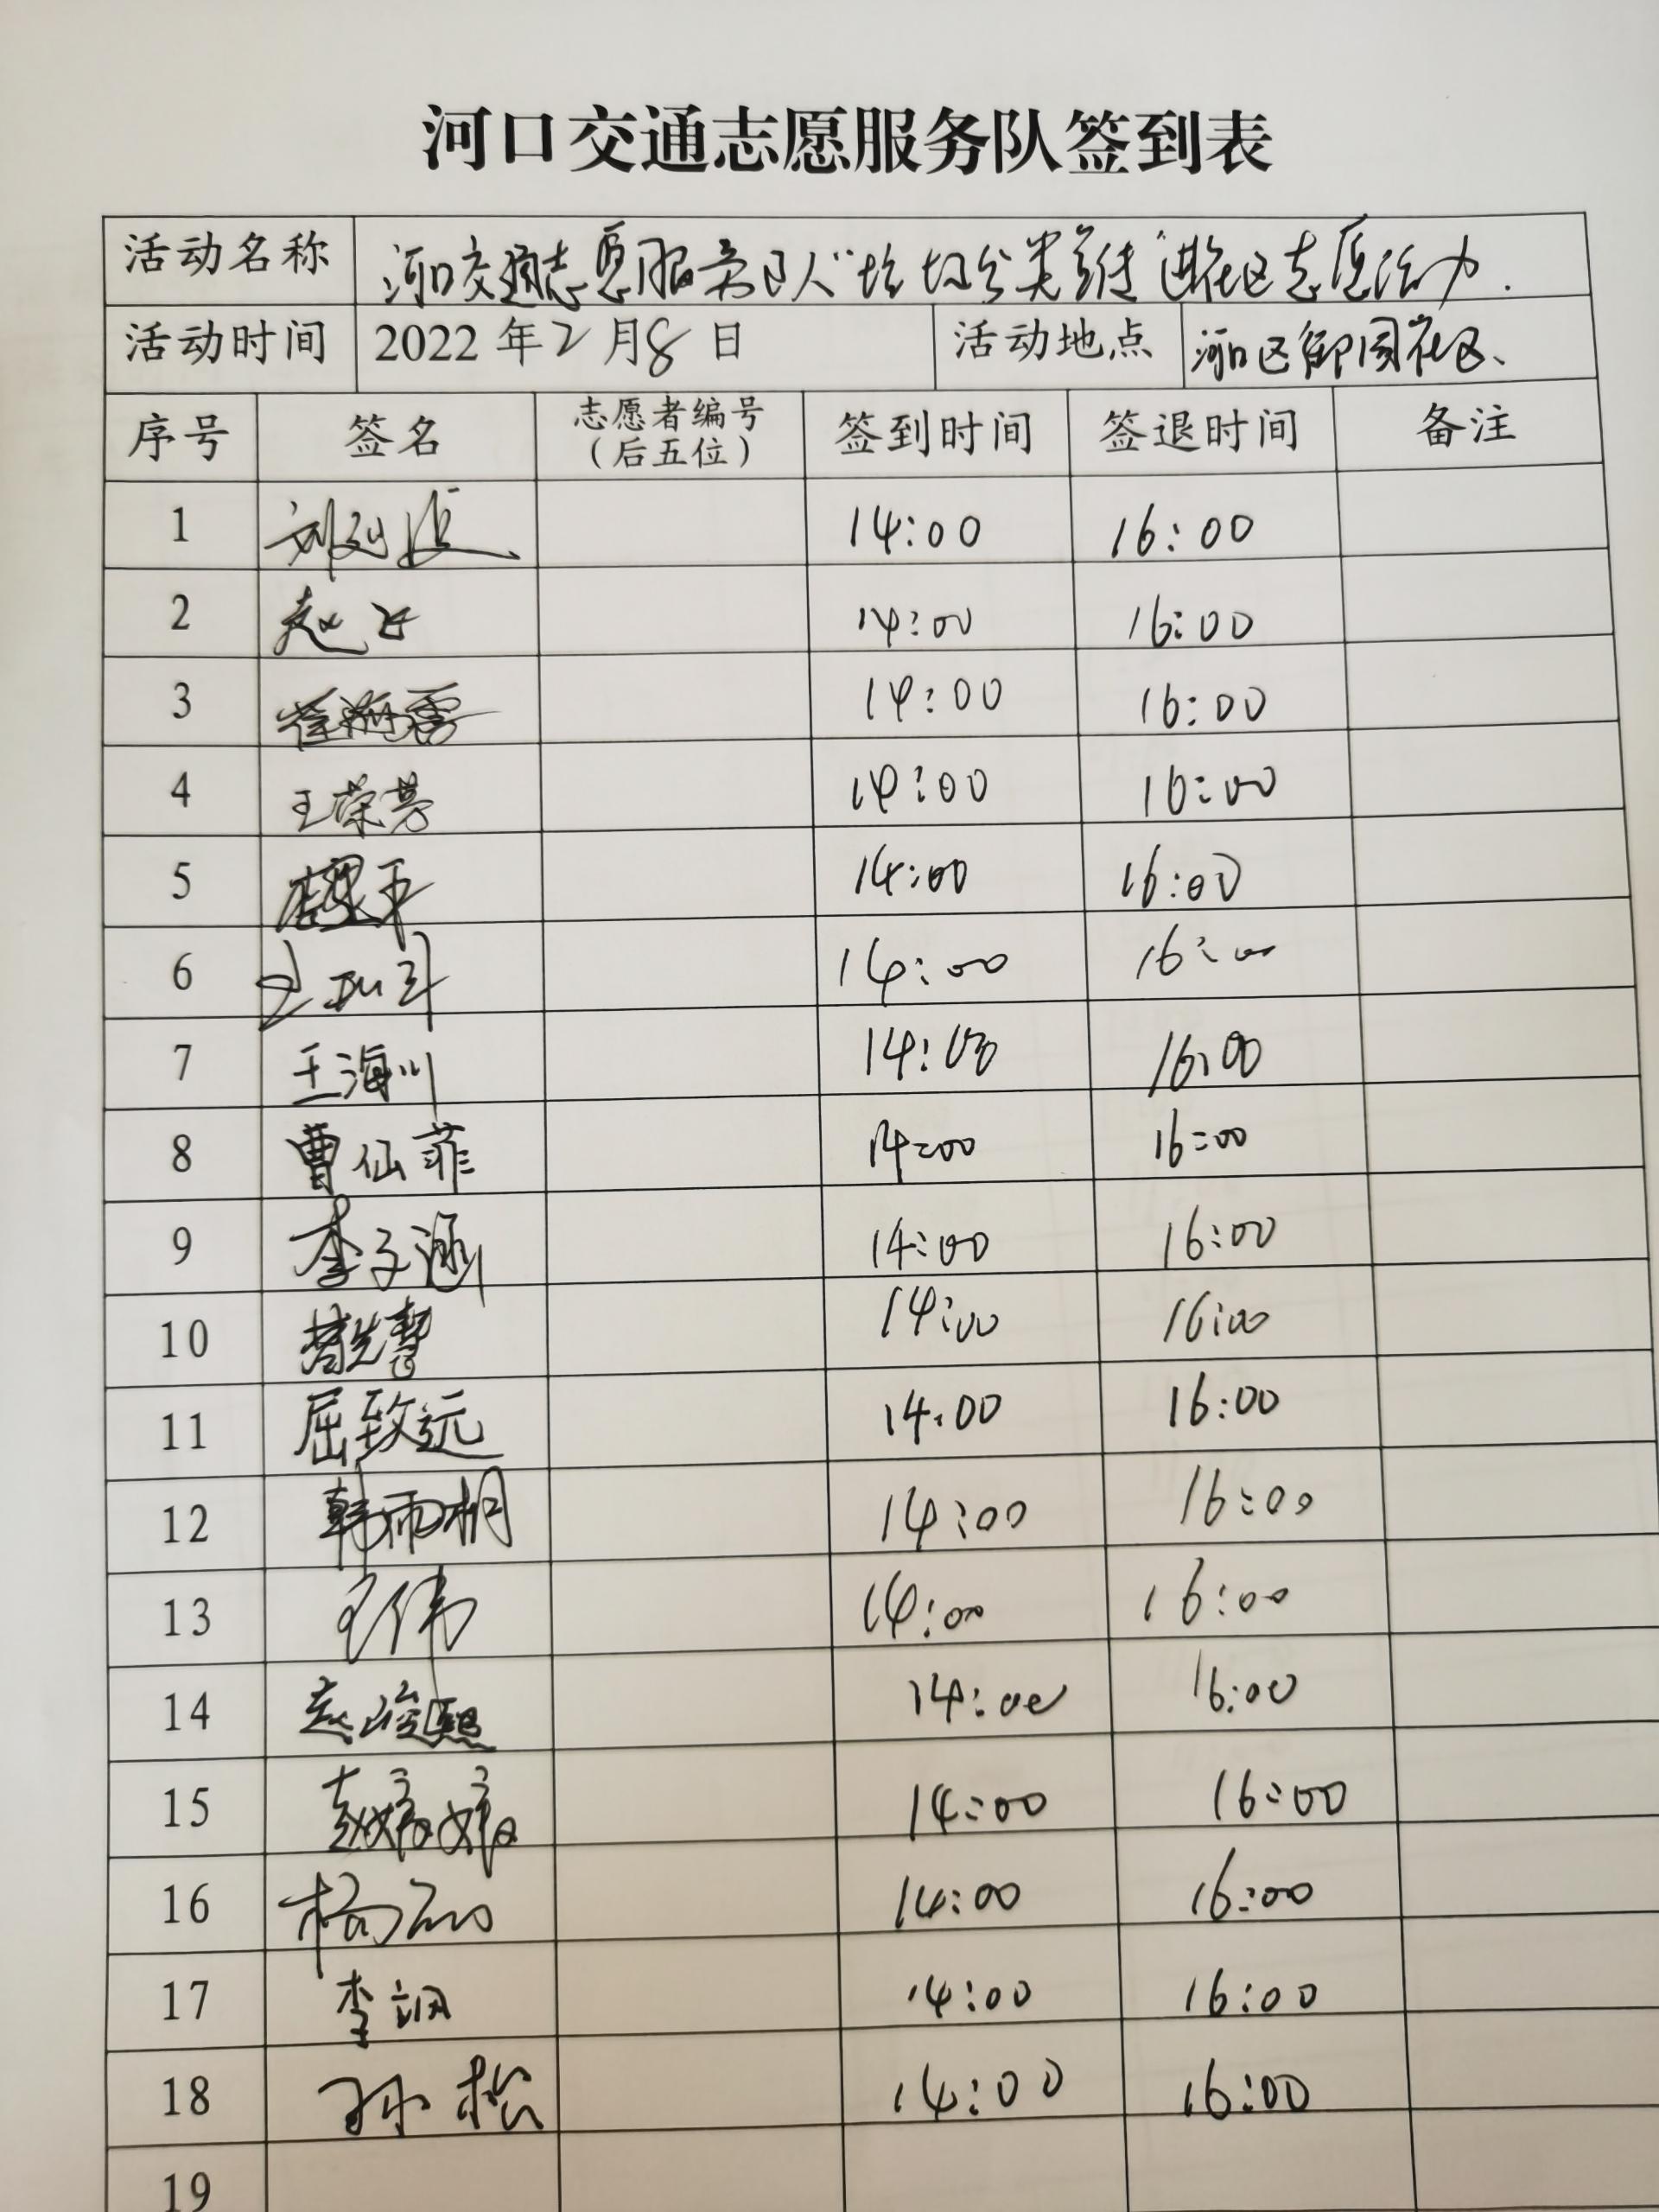 河口交通志愿服务队签到表
活动名称 河口交通志愿服务队"垃圾分类宣传"进社区志愿活动.
活动时间 2022年2月8日 活动地点 河口区御园社区、
序号 签名 志愿者编号 签到时间 签退时间 备注
(后五位)
1 14:00 16:00
2 赵 14:00 16:00
3 14:00 16:00
4 王荣芳 14:00 16:00
5 14:00 16:00
6 14:00 16:00
7 王海川 14:00 16:00
8 曹仙菲 14:00 16:00
9 李子涵 14:00 16:00
10 14:00 16:00
11 屈致远 14:00 16:00
12 韩雨桐 14:00 16:00
13 王伟 14:00 16:00
14 赵浚熙 14:00 16:00
15 赵婷婷 14:00 16:00
16 杨 14:00 16:00
17 李飒 14:00 16:00
18 孙松 14:00 16:00
19